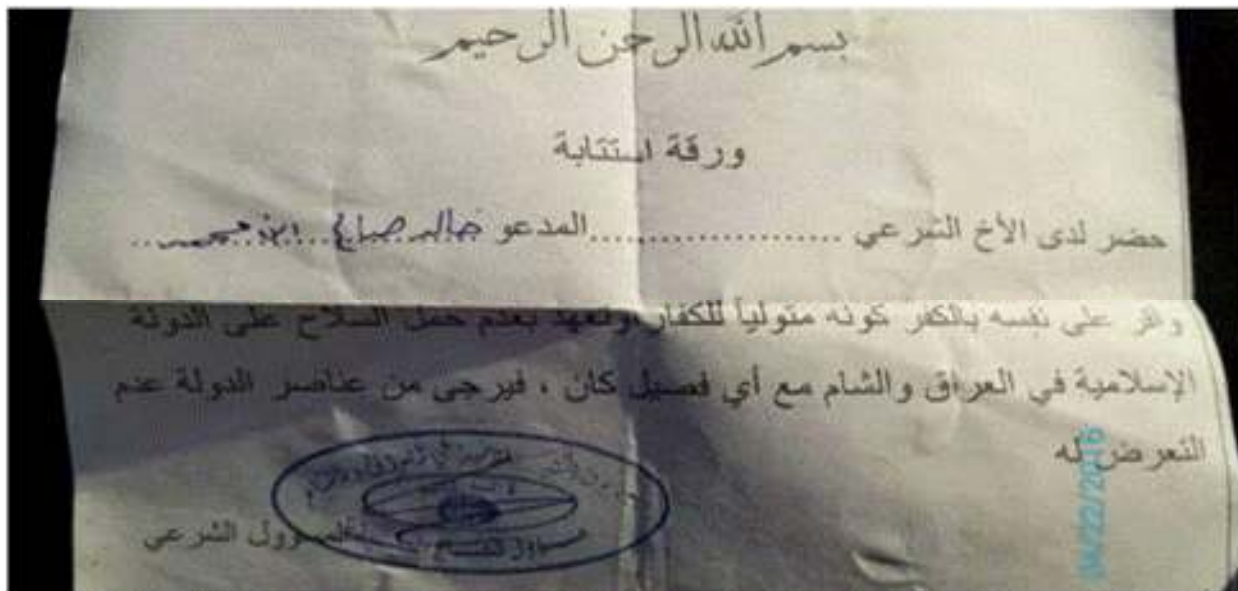 بسم الله الرحمن الرحيم
ورقة استتابة
حضر لدى الأخ الشرعي ..................... المدعو خالد صباغ ابن محمد
واقر على نفسه بالكفر كونه متولياً للكفار وتعهد بعدم حمل السلاح على الدولة
الإسلامية في العراق والشام مع أي فصيل كان ، فيرجى من عناصر الدولة عدم
التعرض له
المسؤول الشرعي